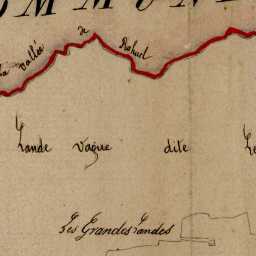 OMMUN
la Vallée de Rohuel
Lande vague dite Le
Les Grandes Landes